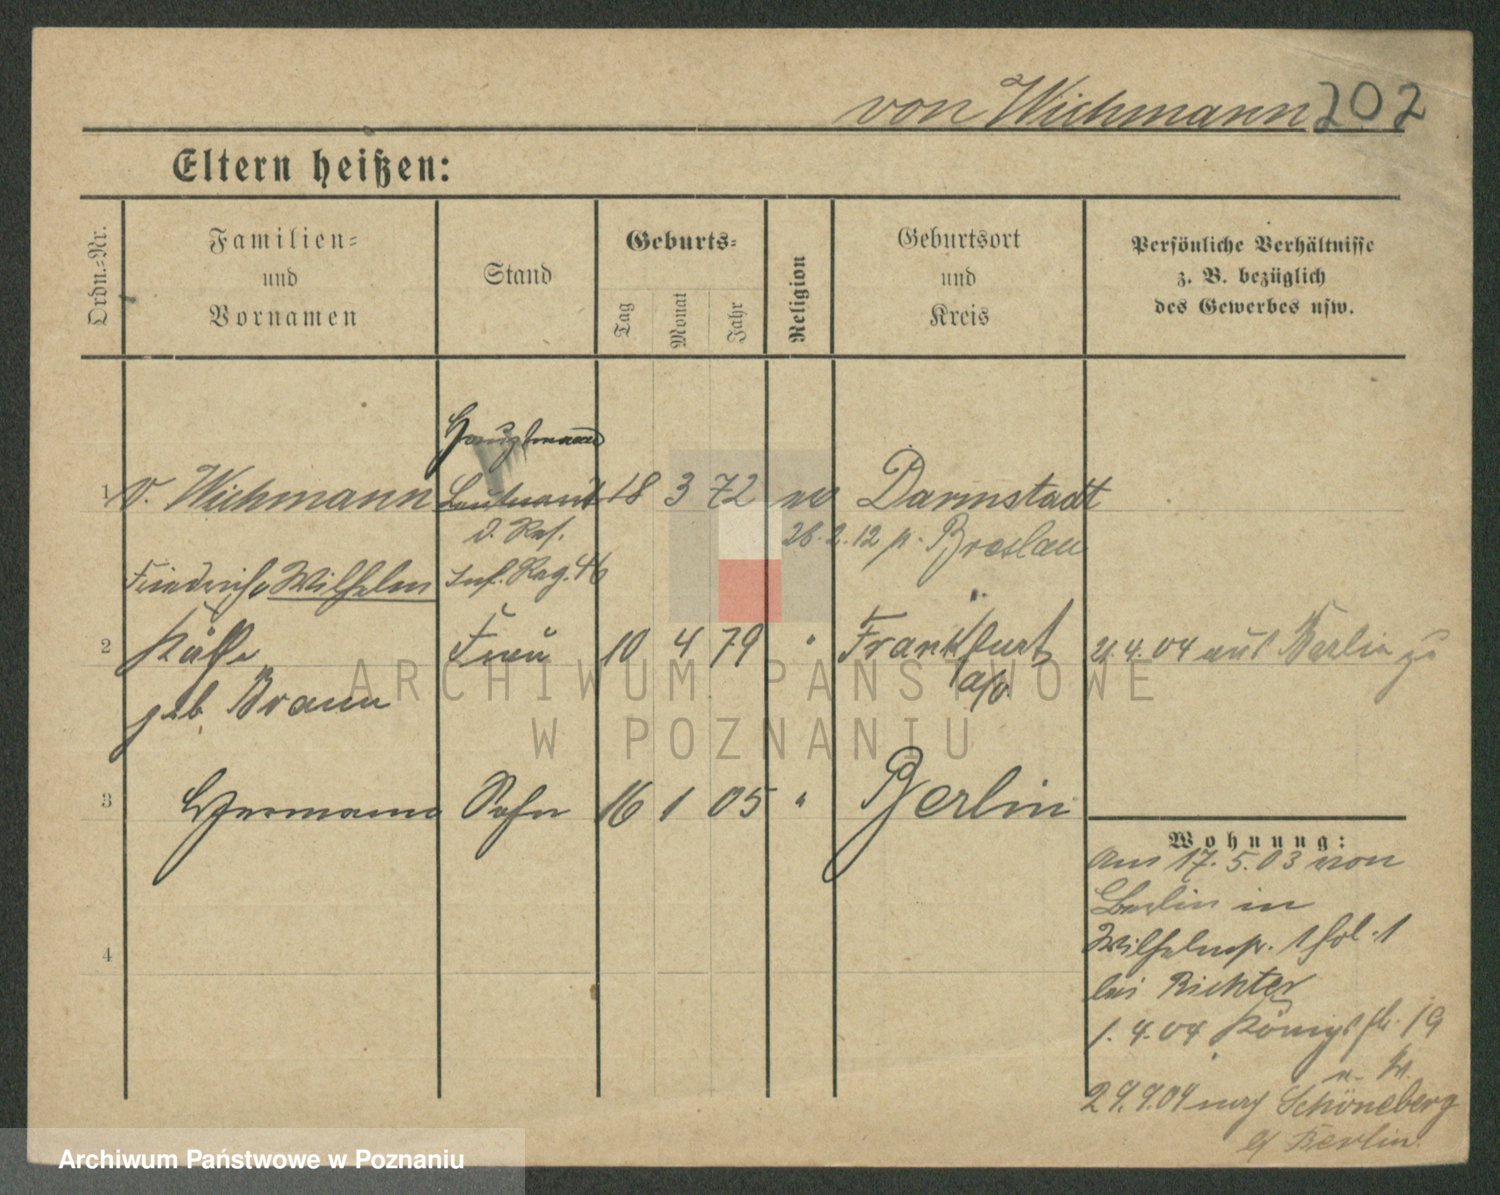 von Wichmann 202
Eltern heißen:
Ordn.-Nr.
Familien=
und
Vornamen
Stand
Geburts-
Tag
Monat
Jahr
Religion
Geburtsort
und
Kreis
Persönliche Verhältnisse
z. B. bezüglich
des Gewerbes usw.
Hauptmann
1 v. Wichmann Leutnant 18 3 72 ev Darmstadt
d. Res. 28.2.12 p. Breslau
Friedrich Wilhelm Inf. Reg. 46
2 Käthe Frau 10 4 79 " Frankfurt 4.04 aus Berlin zu
geb. Braun a/o.
3 Hermann Sohn 16 1 05 " Berlin
Wohnung:
Am 17.5.03 von
Berlin in
Wilhelmpl. 1 Hol. 1
bei Richter
1.4.04 Königspl. 19
29.9.04 nach Schöneberg
b/ Berlin.
4
ARCHIWUM PAŃSTWOWE
W POZNANIU
Archiwum Państwowe w Poznaniu